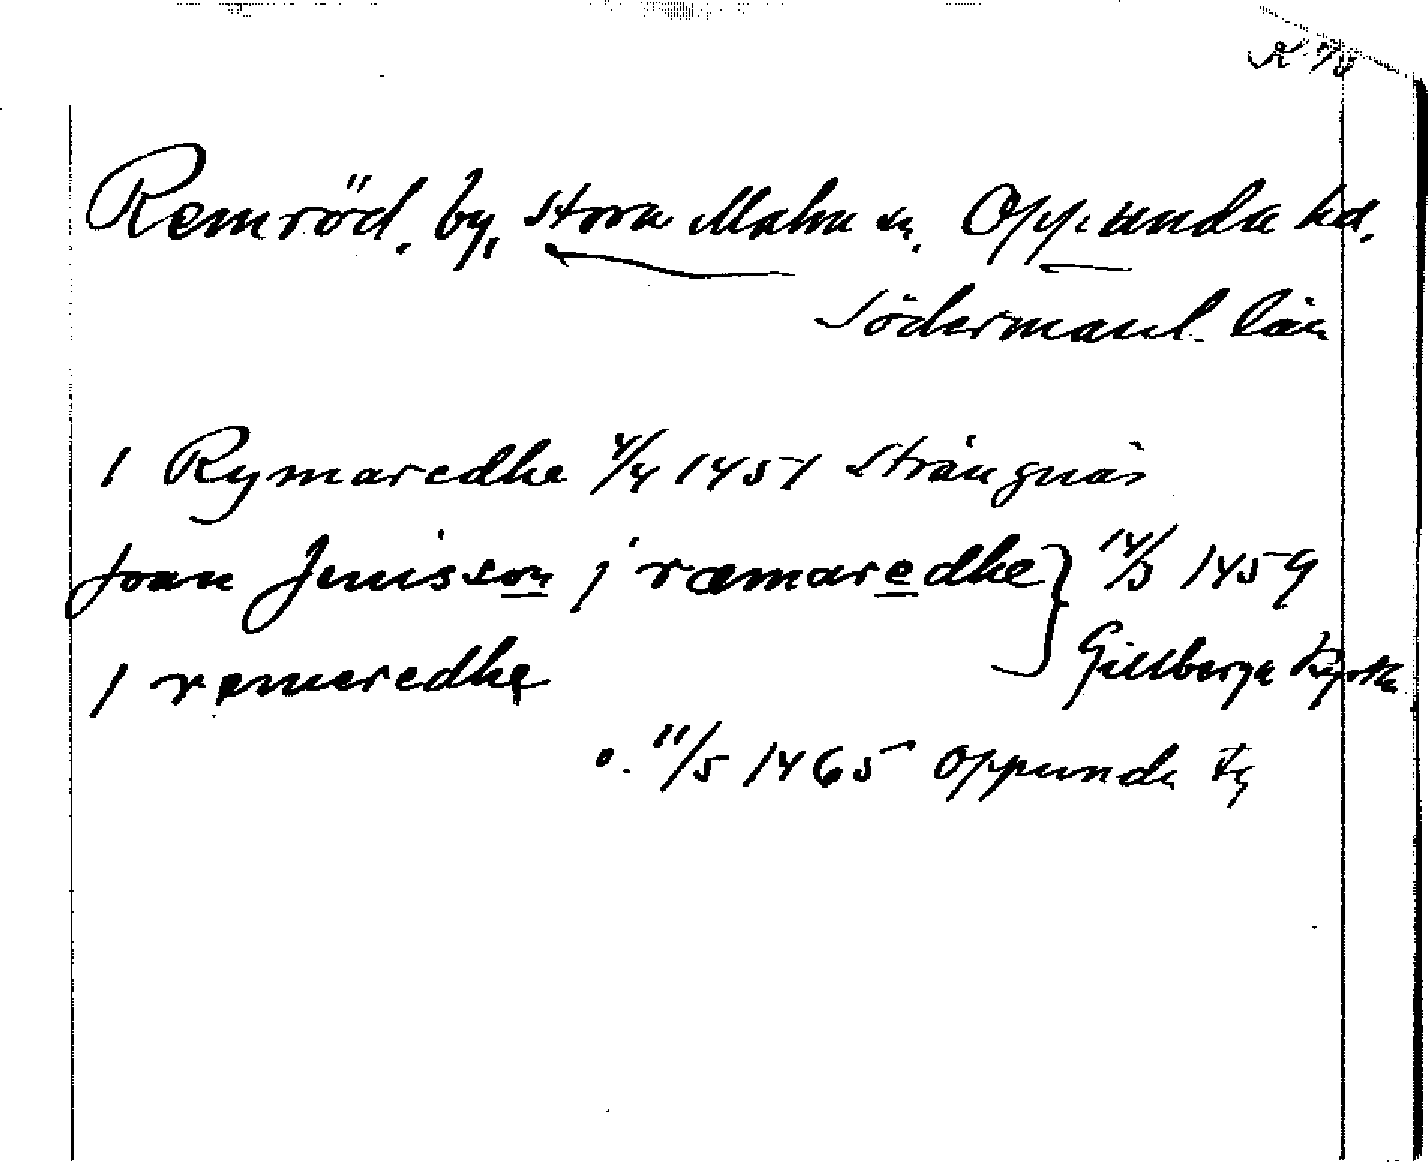 K 78
Remröd. by, Stora Malm sn. Oppunda hd.
Södermanl. län
1 Rymaredhe 4/4 1451 Strängnäs
Joan Jenisson j ræmaredhe } 14/3 1459
1 ræmeredhe Gillberga kyrka
o. 11/5 1465 Oppunda tg